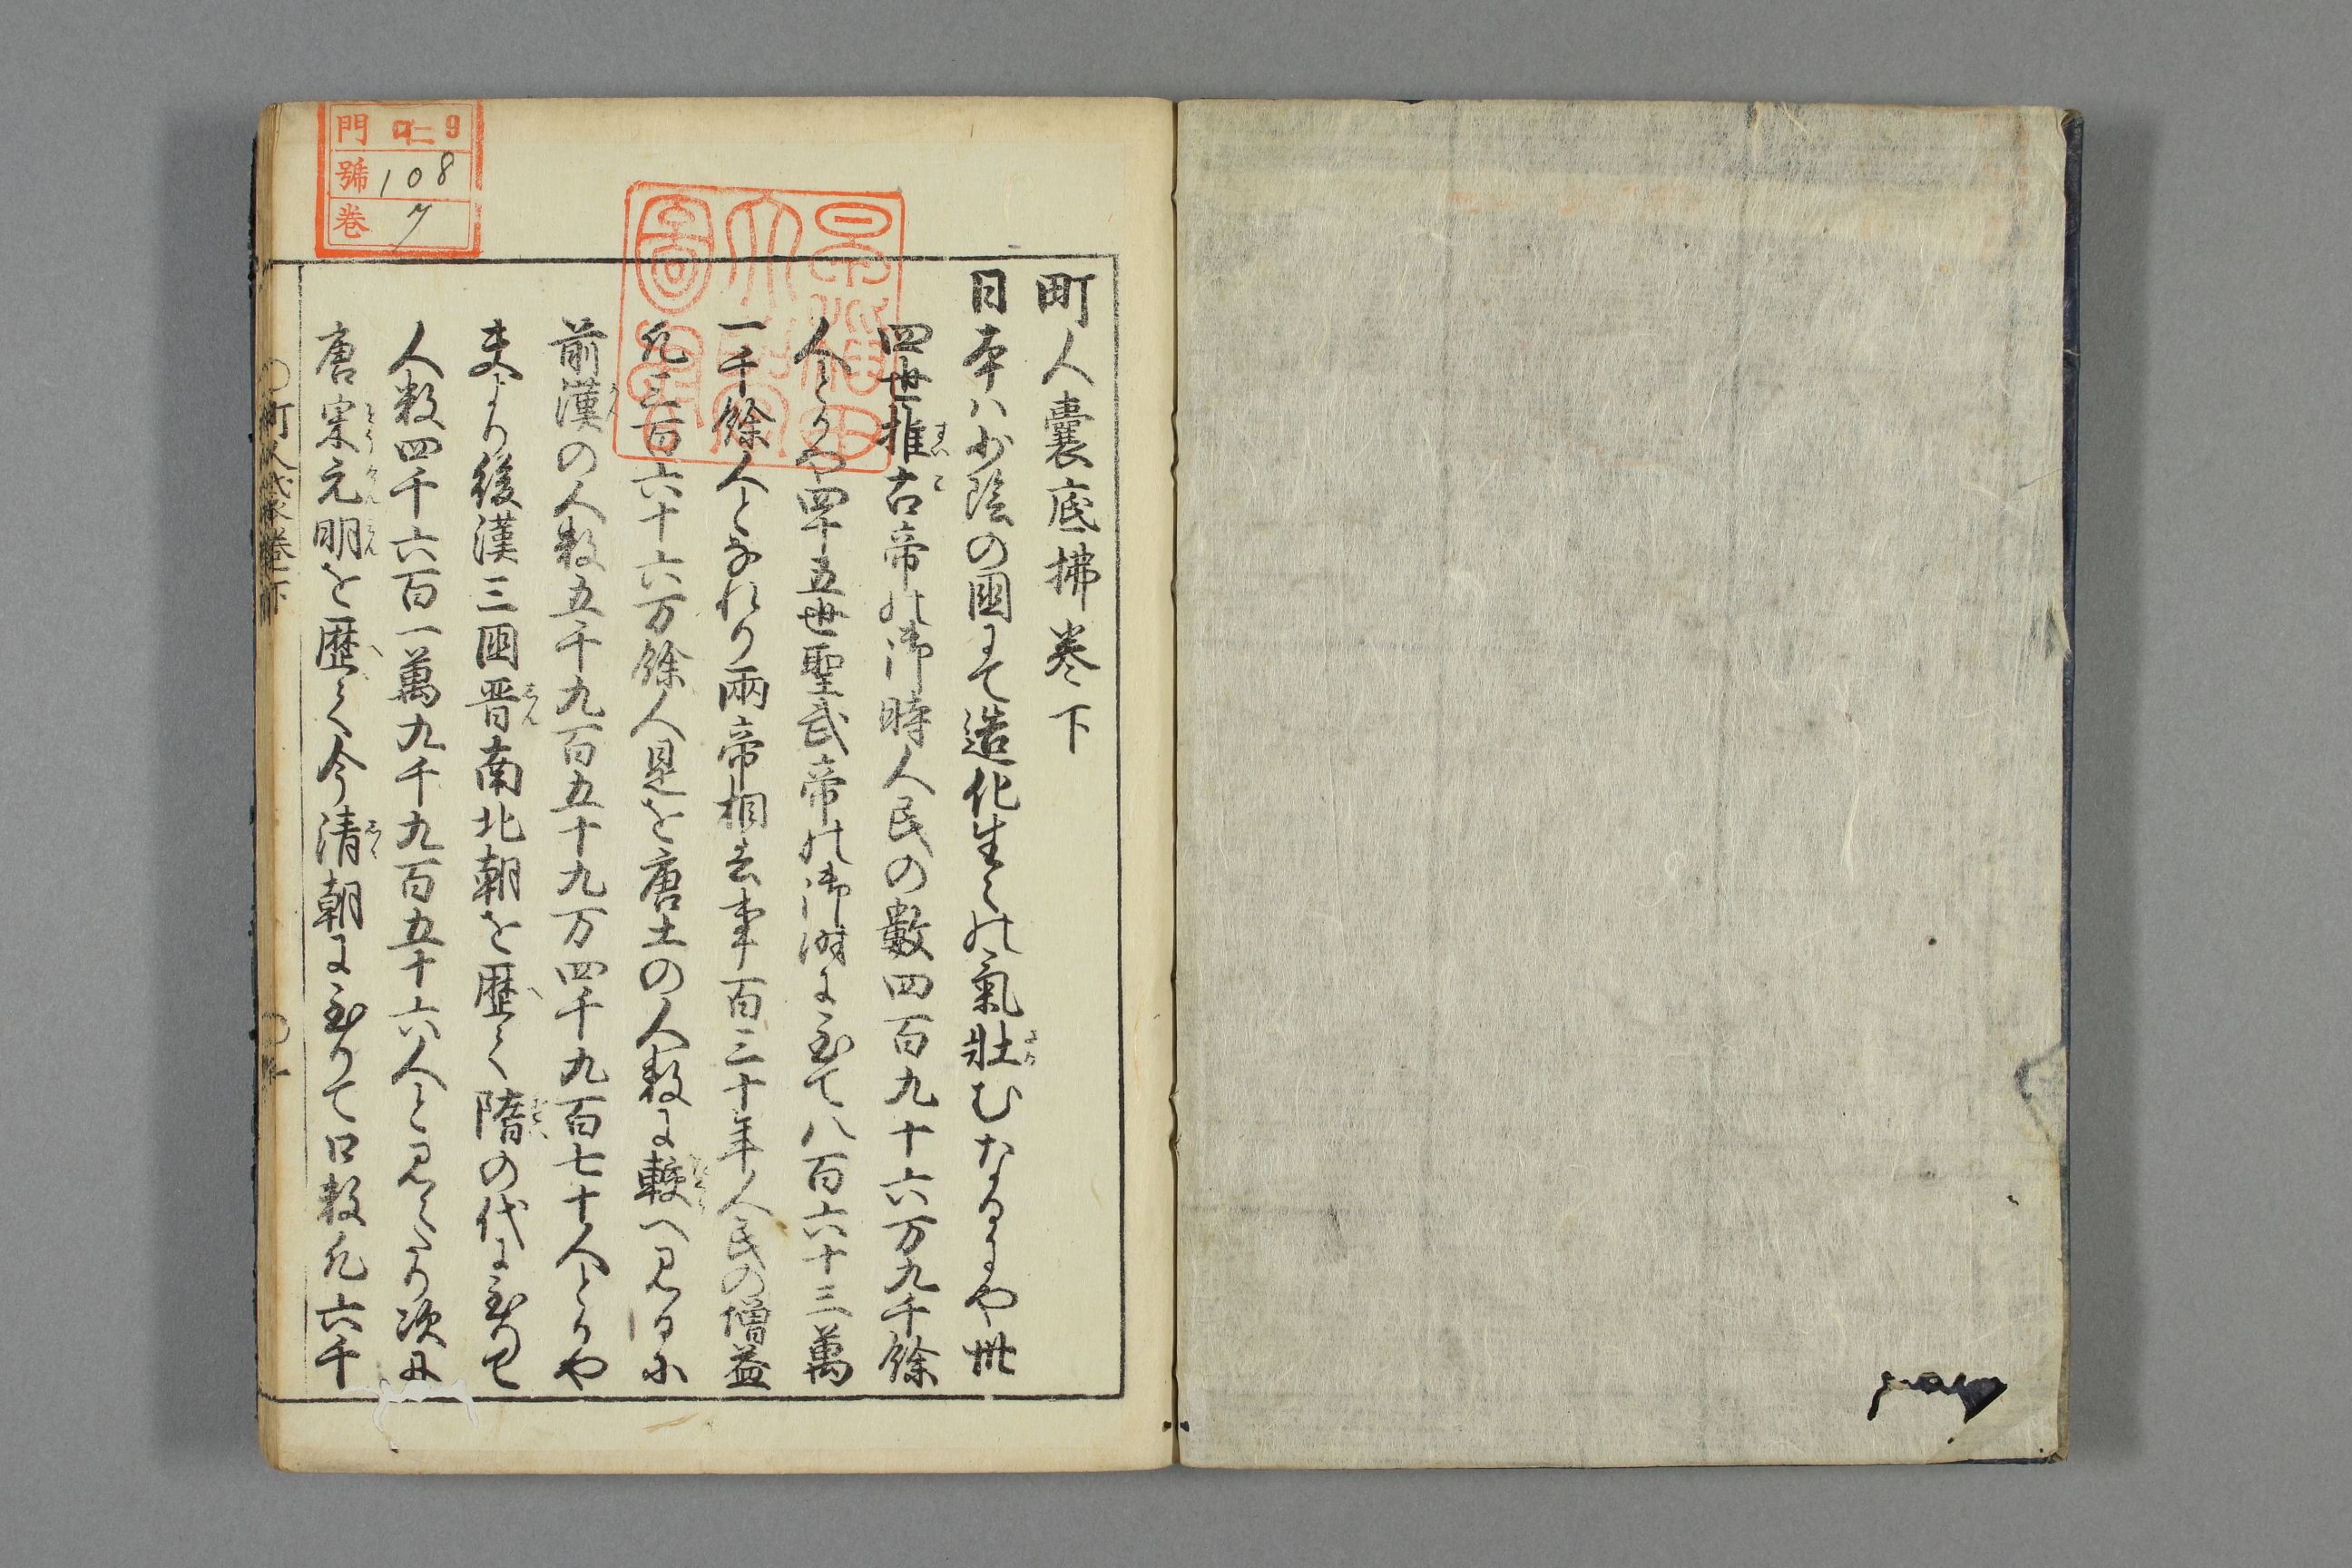 町人囊底拂巻下
日本ハ少陰の國にて造化生々の氣壮むなる尓や卅
四世推古帝の御時人民の數四百九十六万九千餘
人とかや四十五世聖武帝の御時に至て八百六十三萬
一千餘人となれり兩帝相去事百三十年人民の增益
凡三百六十六万餘人是を唐土の人数に較へ見るに
前漢の人数五千九百五十九万四千九百七十人とかや
夫より後漢三國晋南北朝を歴て隋の代に至りて
人数四千六百一萬九千九百五十六人と見えたり次に
唐宋元明を歴て今清朝に至りて口数凡六千
町人囊巻下
門 ロ二 9
號 108
巻 7
早稲田大學圖書